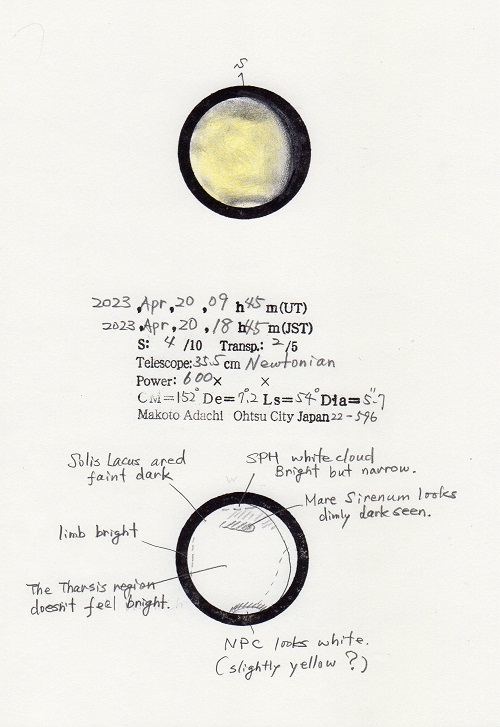 S
2023 Apr, 20, 09 h 45 m(UT)
2023, Apr, 20, 18 h 45 m(JST)
S: 4 /10 Transp.: 2 /5
Telescope: 35.5 cm Newtonian
Power: 600 × ×
CM=152° De=7.2 Ls=54° Dia=5".7
Makoto Adachi Ohtsu City Japan 22-596
Solis Lacus ared
faint dark
SPH white cloud
Bright but narrow.
Mare Sirenum looks
dimly dark seen.
limb bright
The Tharsis region
doesn't feel bright.
NPC looks white.
(slightly yellow ?)